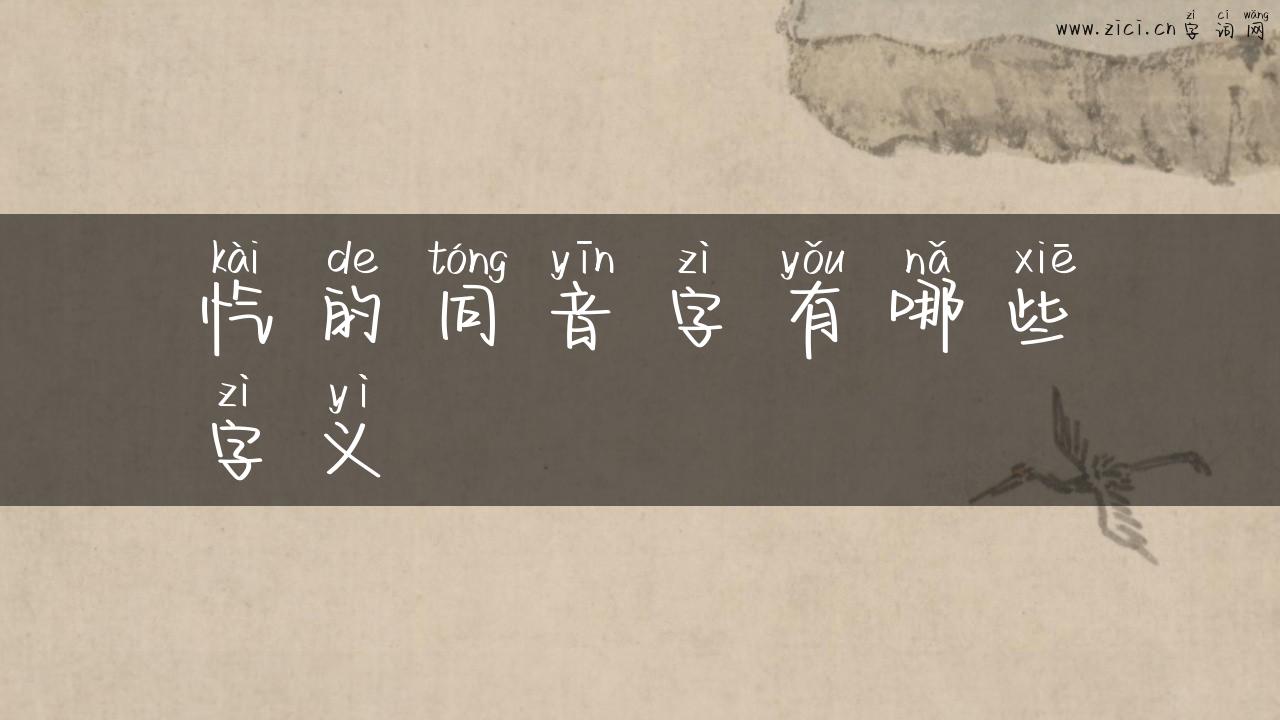 zì cí wǎng
www.zici.cn 字词网
kài de tóng yīn zì yǒu nǎ xiē
忾的同音字有哪些
zì yì
字义